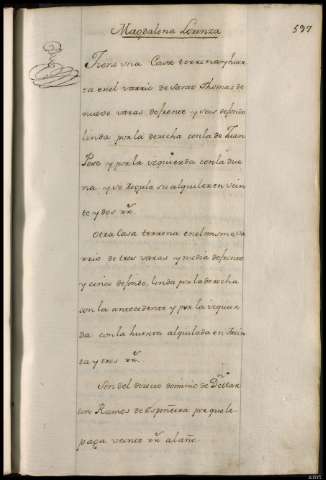 Magdalena Lorenza
597
Tiene una Casa terrena y huer
ta en el varrio de Santo Thomas de
nueve varas de frente y seis de fondo
linda por la derecha con la de Juan
Pose y por la izquierda con la
na y se regula su alquiler en vein
te y dos rr.
Otra Casa terrena en el mismo va
rrio de tres varas y media de frente
y cinco de fondo, linda por la derecha
con la antecedente y por la izquier
da con la huerta alquilada en trein
ta y tres rr.
Son del directo dominio de Dn
Ramos de Espiñeira por que le
paga veinte rr. al año